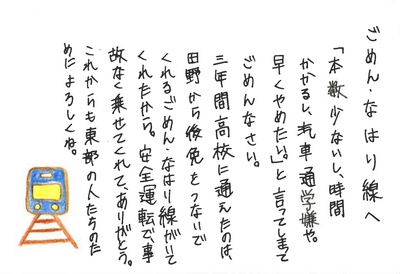 ごめん・なはり線へ
「本数少ないし、時間
かかるし、汽車通学嫌や。
早くやめたい。」と言ってしまって
ごめんなさい。
三年間高校に通えたのは
田野から後免をつないで
くれるごめん・なはり線がいて
くれたから。安全運転で事
故なく乗せてくれて、ありがとう。
これからも東部の人たちのた
めによろしくね。